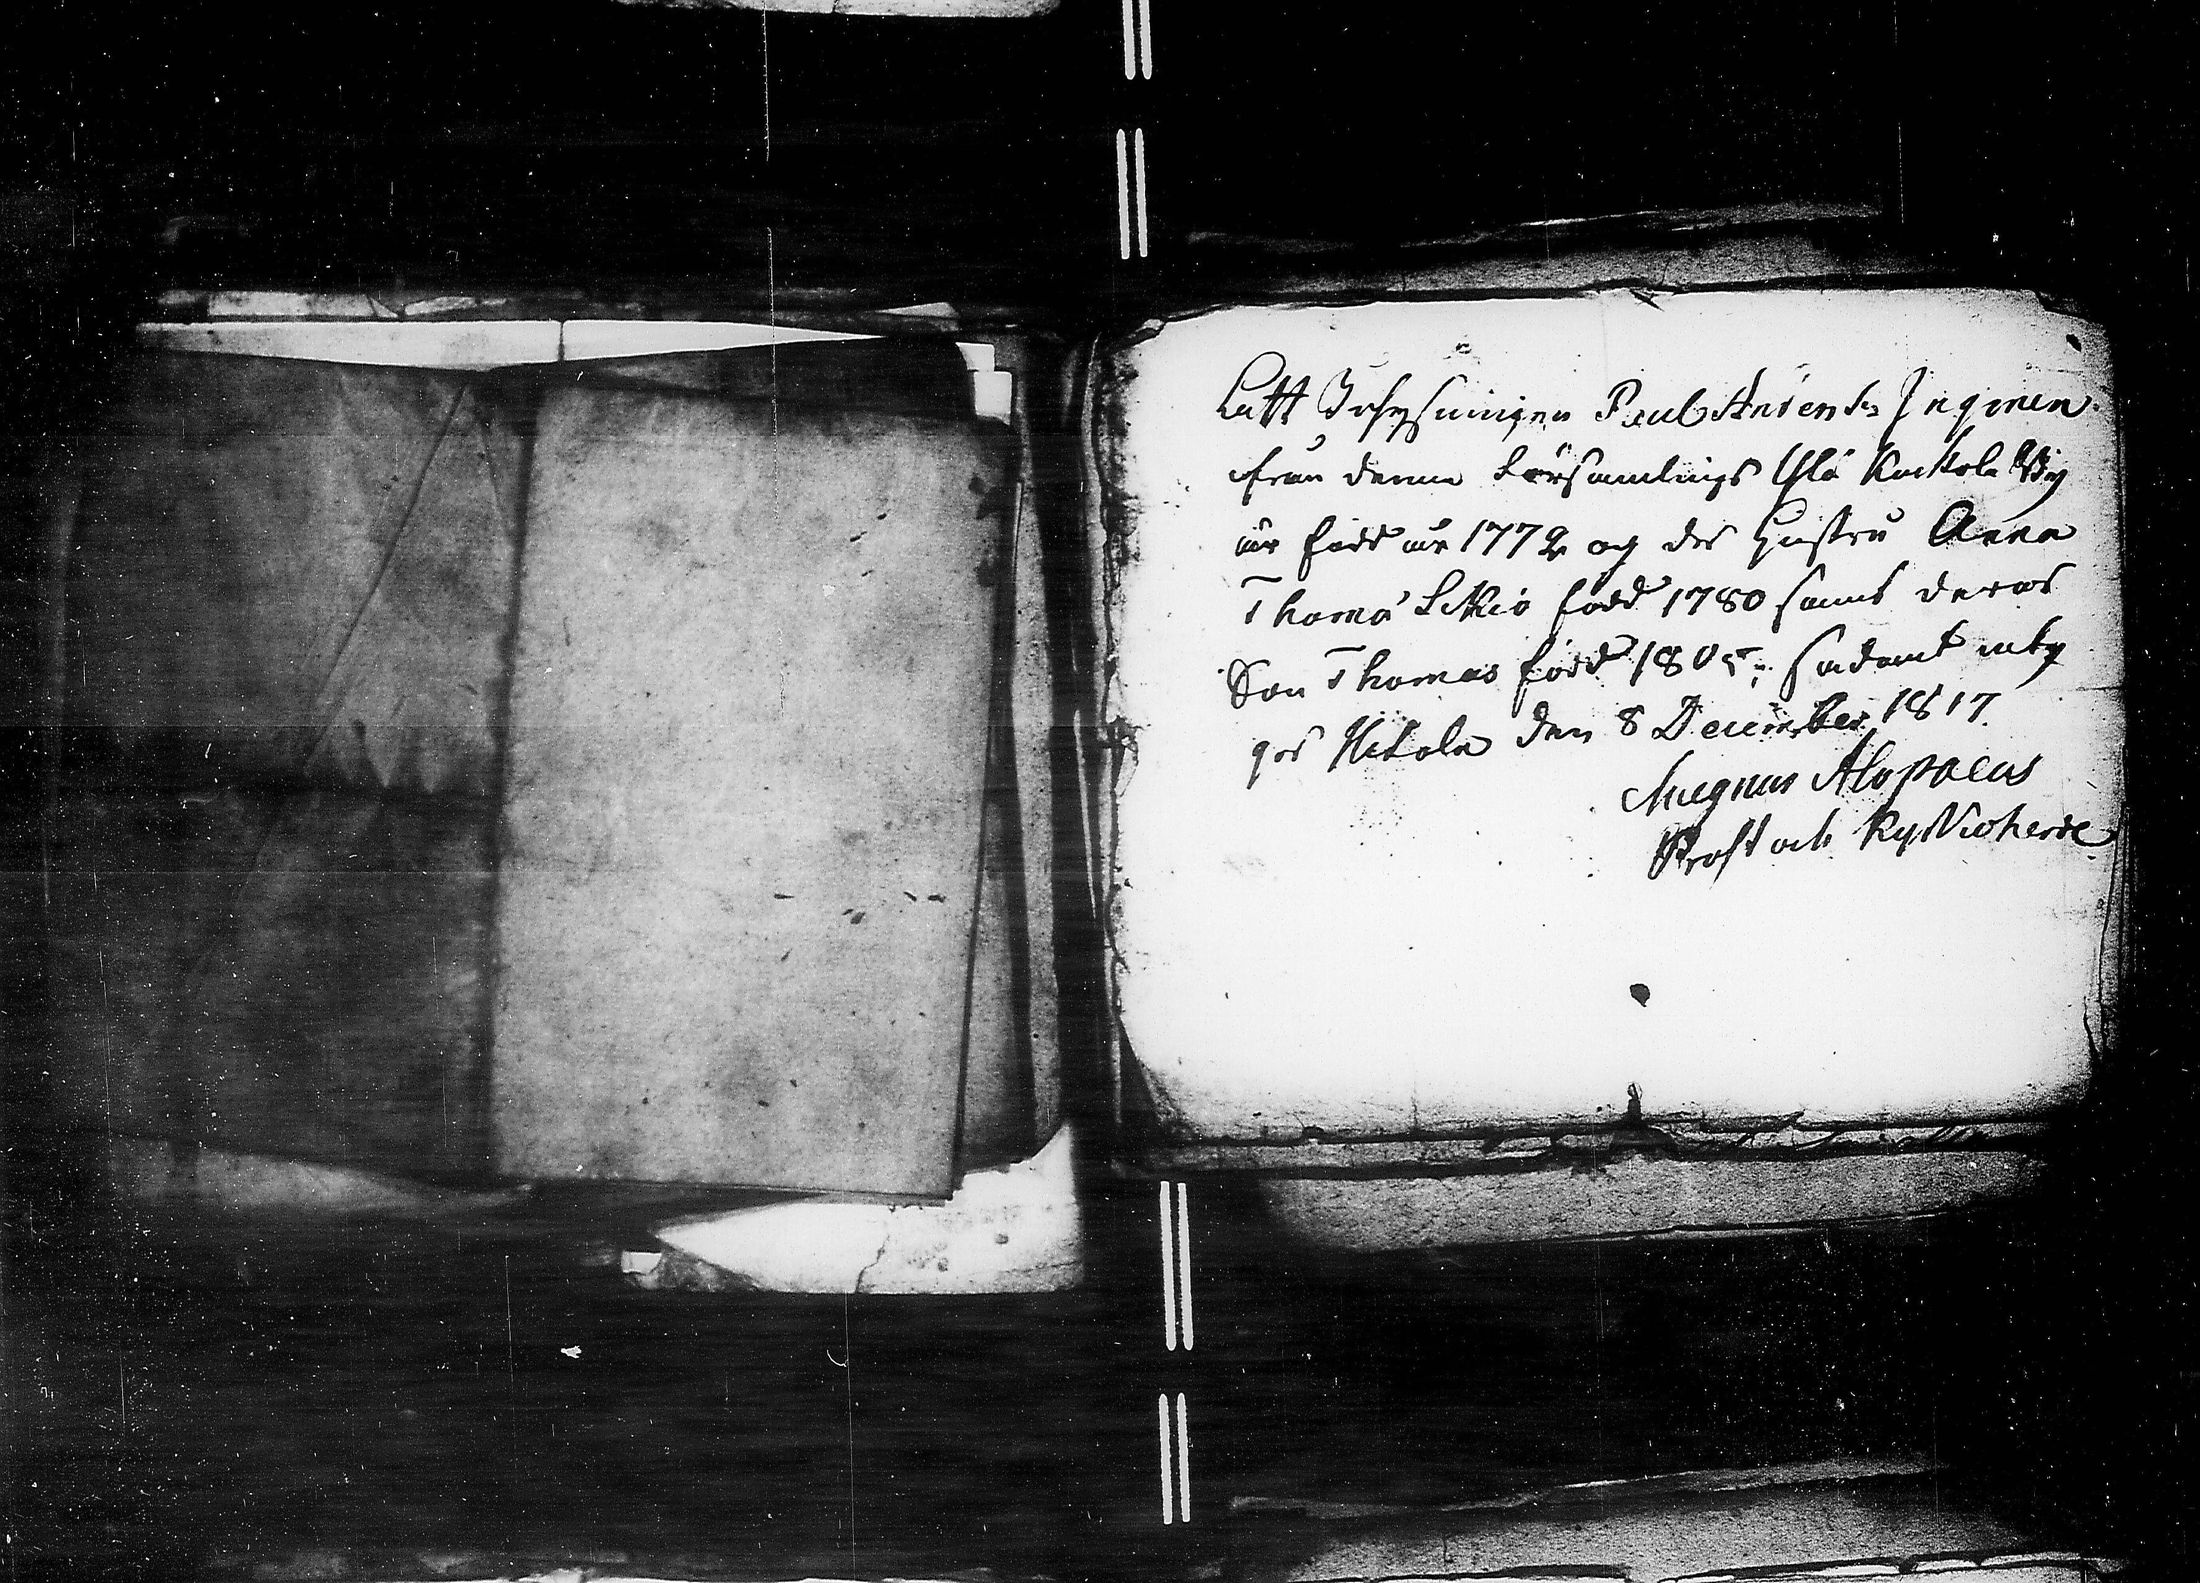 Att Inhysningen Paul Anders. Inginen
från denne Församlings Ylä Kockola By
är född år 1772 og des Hustru Anna
Thomä Sikiö född 1780 samt deras
Son Thomas född 1805; sådant inty
gas Hitola den 8 December 1817.
Magnus Alopaeus
Prost och Kyrkioherde